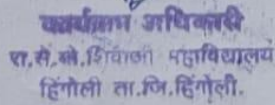 कार्यक्रम अधिकारी
रा.से.यो.शिवाजी महाविद्यालय
हिंगोली ता.जि.हिंगोली.